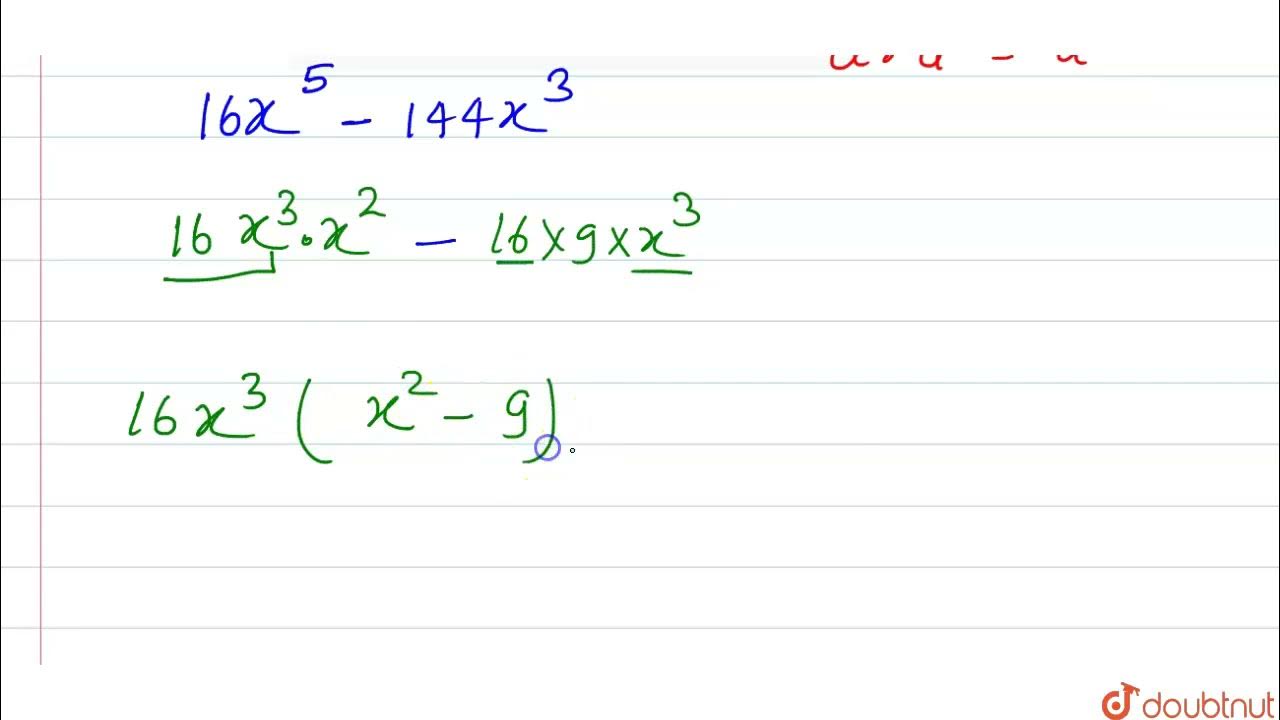 16x⁵ - 144x³
16 x³·x² - 16×9×x³
16x³ ( x² - 9)
doubtnut